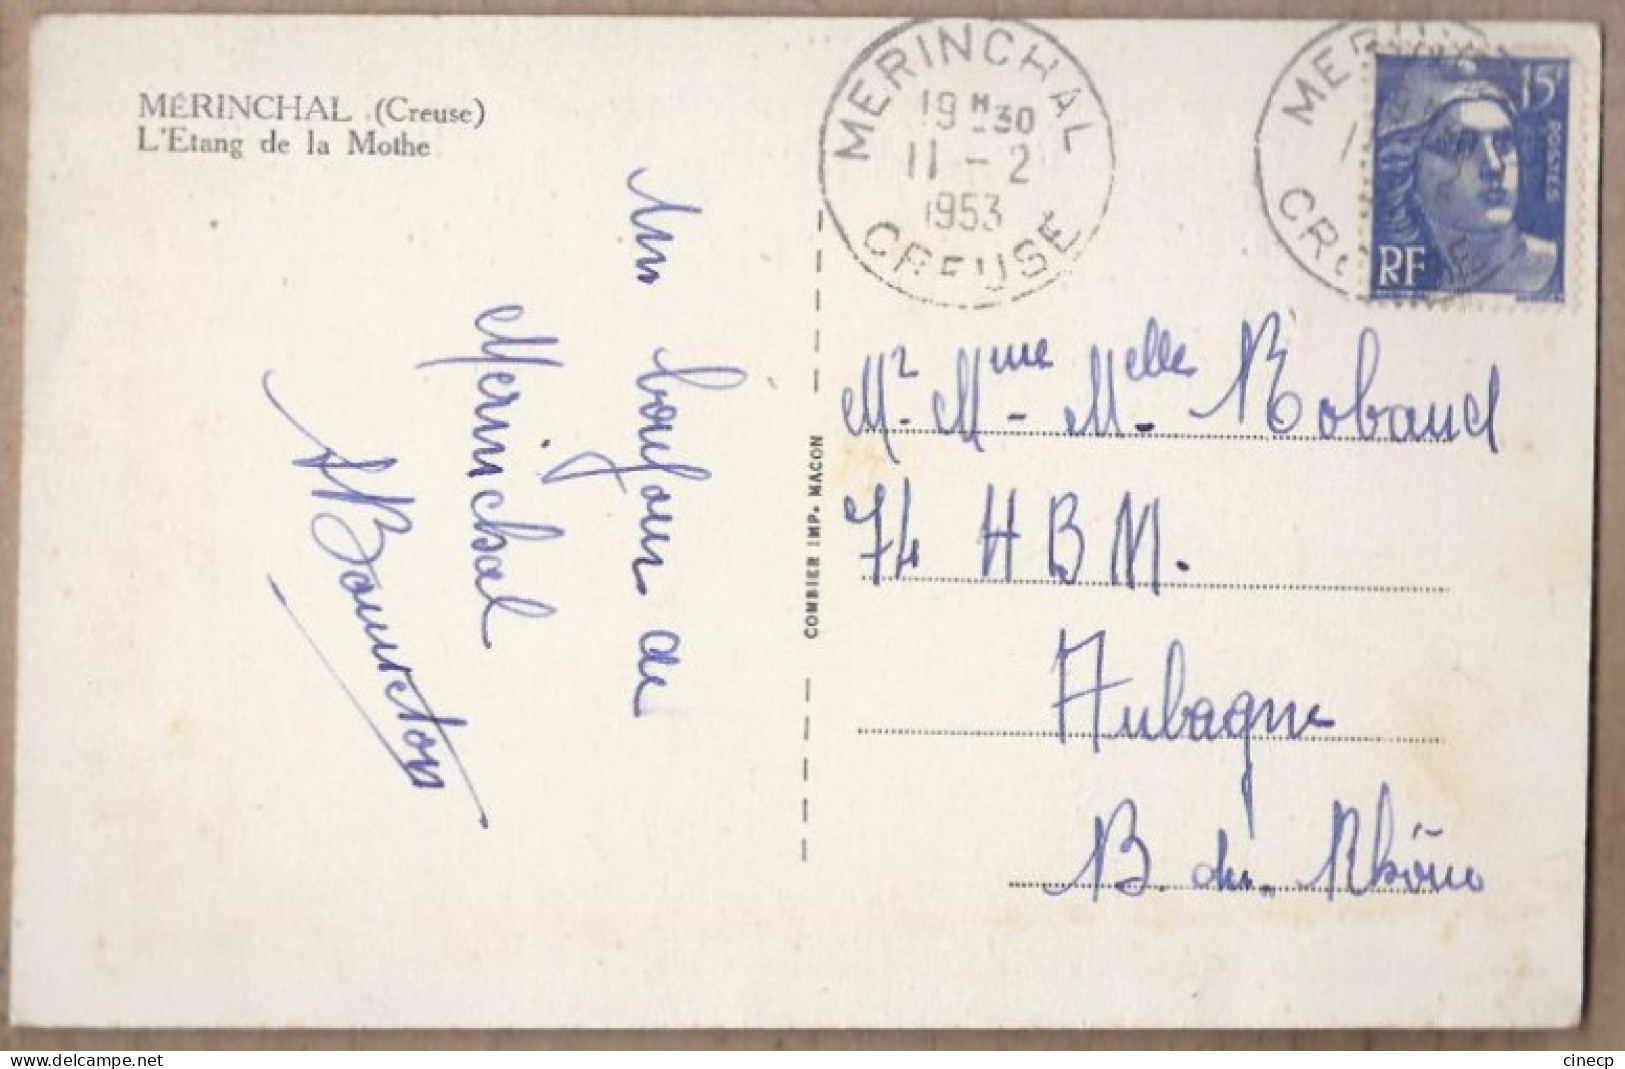 MÉRINCHAL (Creuse)
L'Etang de la Mothe
Un bonjour de
Merinchal
COMBIER IMP. MACON
MERINCHAL
19 H 30
11 - 2
1953
CREUSE
15F
POSTES
RF
Mr. Mme - Melle Robaud
74 H B M.
Aubagne
B. du. Rhône
cinecp